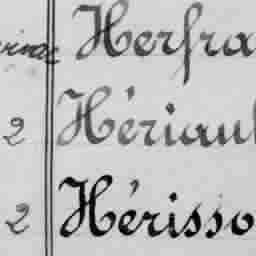 Herfra
2 Hériaul
2 Hérisso